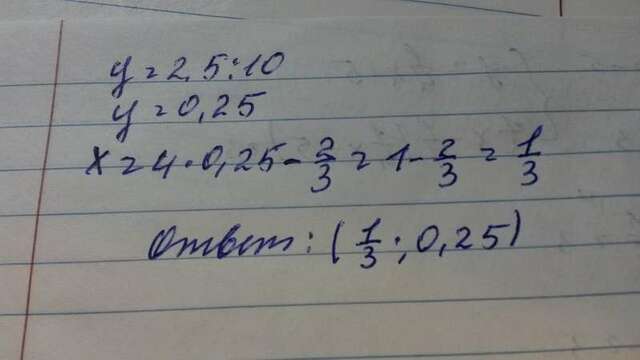 y = 2,5:10
y = 0,25
x = 4·0,25 - 2/3 = 1 - 2/3 = 1/3
Ответ: (1/3; 0,25)